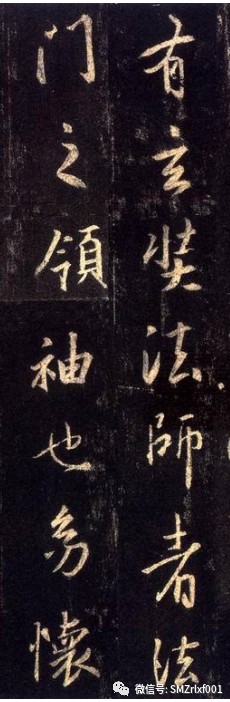 有玄奘法師者法
門之領袖也幼懷
微信号: SMZrlxf001